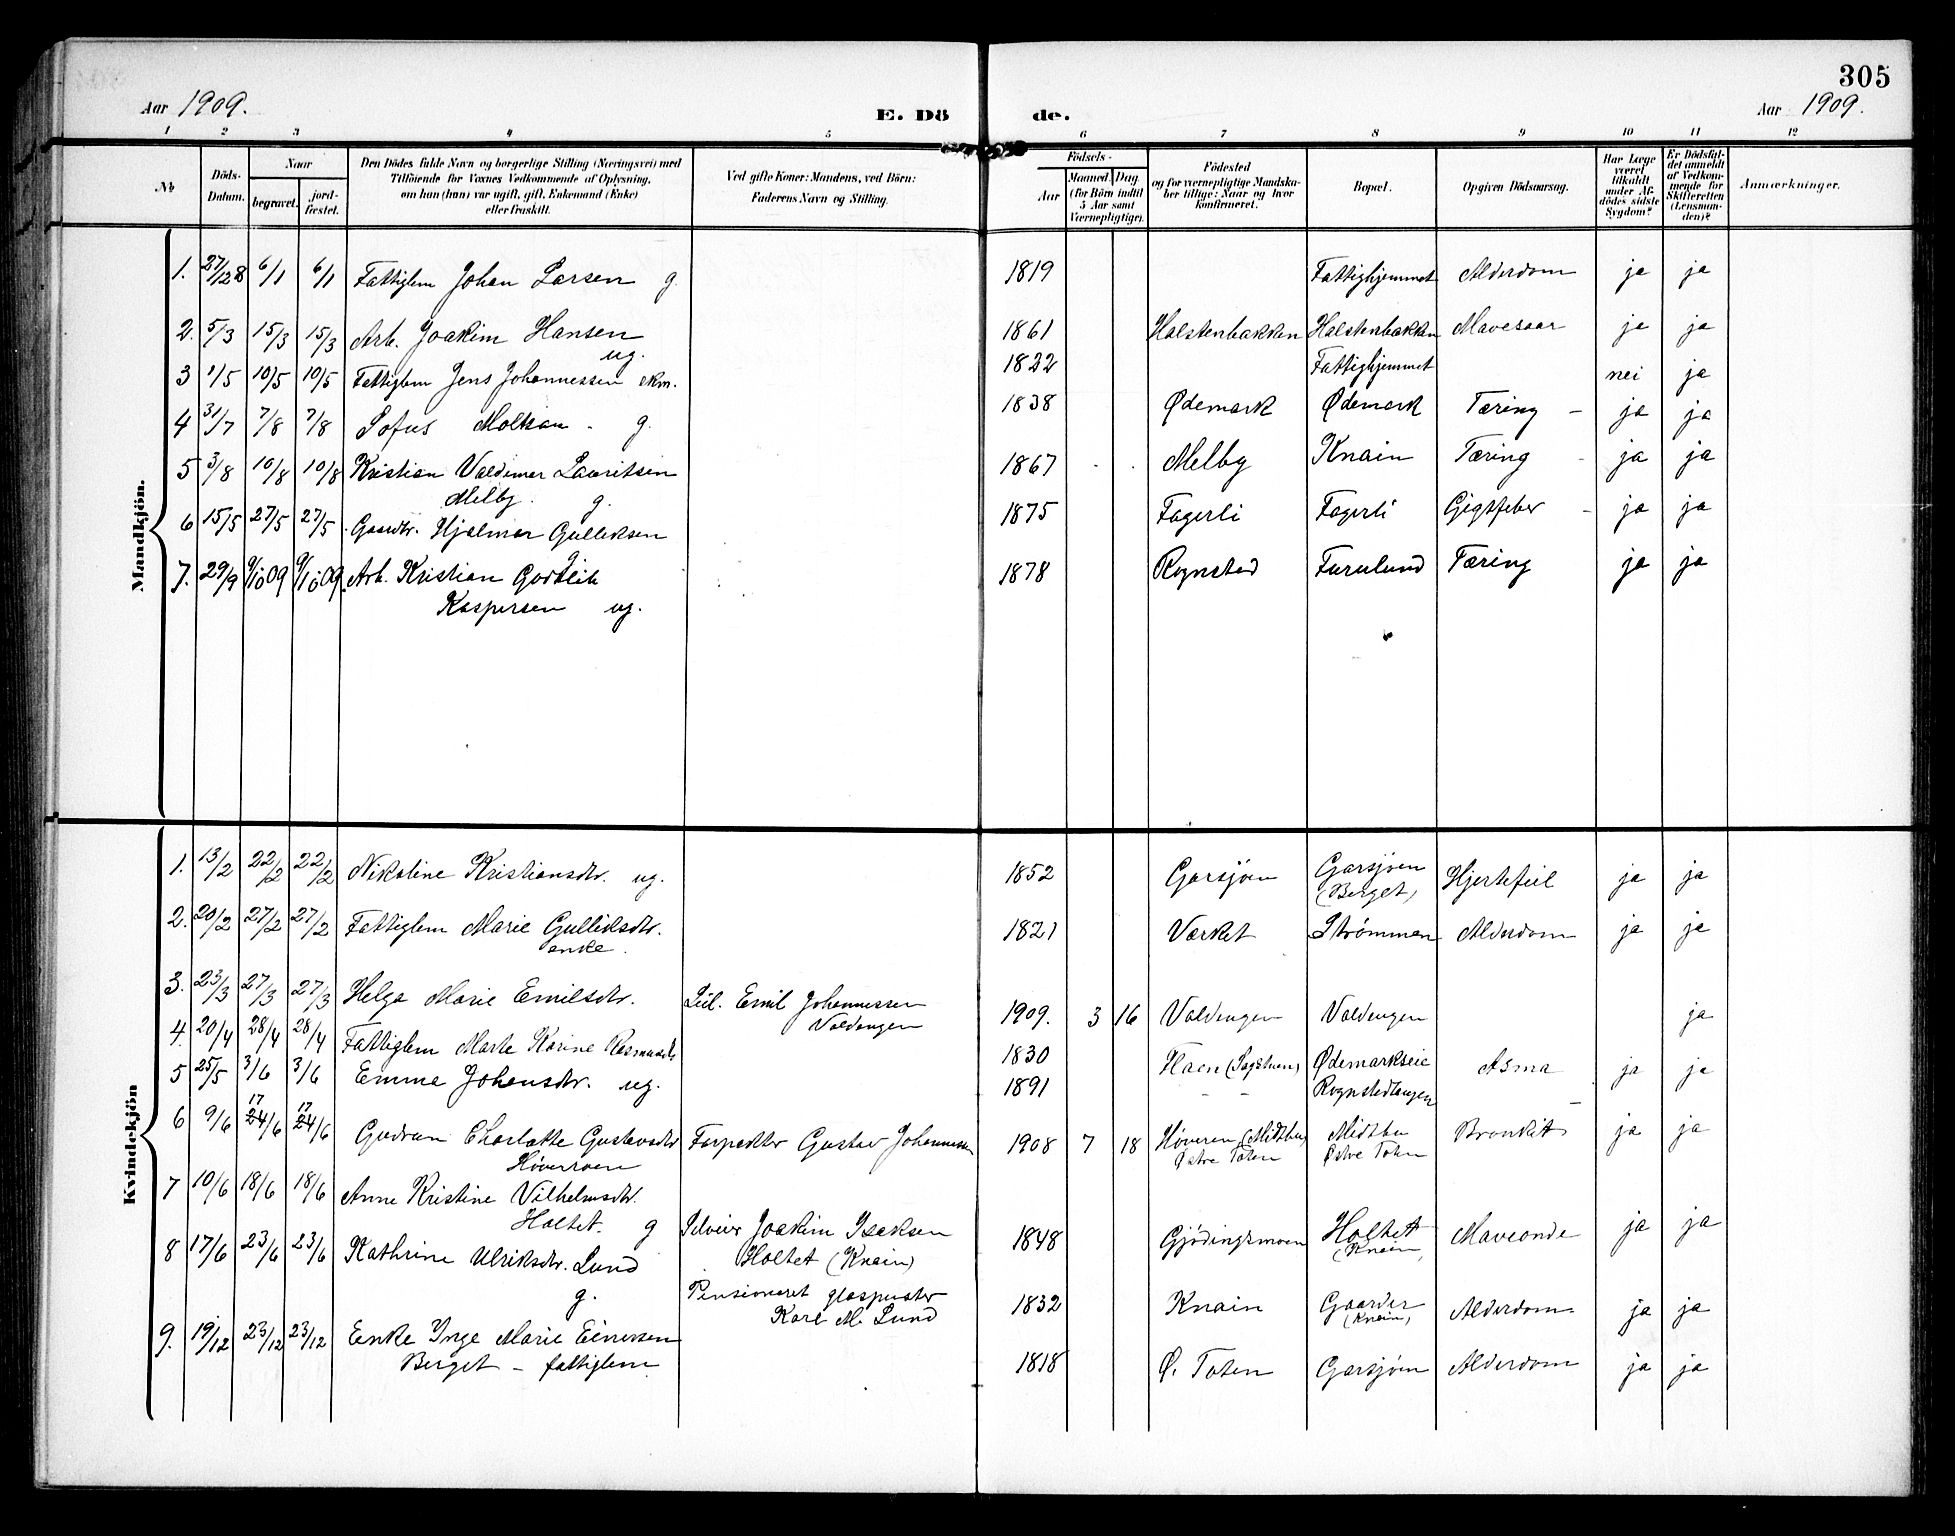 305
Aar 1909.
E. Dö
de.
Aar 1909.
1 2 3 4 5 6 7 8 9 10 11 12
No
Döds-
Datum.
Naar
begravet.
jord-
fæstet.
Den Dödes fulde Navn og borgerlige Stilling (Næringsvei) med
Tilföiende for Voxnes Vedkommende af Oplysning,
om han (hun) var ugift, gift, Enkemand (Enke)
eller fraskilt.
Ved gifte Koner: Mandens, ved Börn:
Faderens Navn og Stilling.
Födsels-
Aar
Maaned. Dag.
(for Börn indtil
5 Aar samt
Værnepligtige).
Födested
og for værnepligtige Mandska-
ber tillige: Naar og hvor
konfirmeret.
Bopæl.
Opgiven Dödsaarsag.
Har Læge
været
tilkaldt
under Af-
dödes sidste
Sygdom?
Er Dödsfal-
det anmeldt
af Vedkom-
mende for
Skifteretten
(Lensman-
den)?
Anmærkninger.
Mandkjön.
1. 27/12 8 6/1 6/1 Fattiglem Johan Larsen g. 1819 Fattighjemmet Alderdom ja ja
2. 5/3 15/3 15/3 Arb. Joakim Hansen 1861 Halstenbakken Halstenbakken Mavesaar ja ja
ug.
3 1/5 10/5 10/5 Fattiglem Jens Johannessen ekm. 1822 Fattighjemmet nei ja
4 31/7 7/8 7/8 Sofus Molkau - g. 1838 Ødemark Ødemark Tæring - ja ja
5 3/8 10/8 10/8 Kristian Valdemar Lauritsen 1867 Melby Knain Tæring - ja ja
Melby. g.
6 15/5 27/5 27/5 Gaardbr. Hjalmar Gulliksen 1875 Fagerli Fagerli Gigtfeber - ja ja
7. 29/9 9/10 09 9/10 09 Arb. Kristian Gotlib 1878 Rognstad Furulund Tæring ja ja
Kaspersen ug.
Kvindekjön
1. 13/2 22/2 22/2 Nikoline Kristiansdtr. ug. 1852 Garsjøen Garsjøen Hjertefeil ja ja
(Berget)
2. 20/2 27/2 27/2 Fattiglem Marie Gulliksdtr. 1821 Værket Strømmen Alderdom ja ja
enke.
3. 23/3 27/3 27/3 Helga Marie Emilsdtr. Emil Johannessen 1909. 3 16 Valdengen Valdengen ja
Valdengen
4. 20/4 28/4 28/4 Fattiglem Marte Karine Rasmusdtr 1830 Haen (Sagstuen) Ødemarkseie Asma ja ja
5 25/5 3/6 3/6 Emma Johansdtr. ug. 1891 - - Rognstadtangen -
6 9/6 17 24/6 17 24/6 Gudrun Charlotte Gustavsdtr Forpagter Gustav Johannessen 1908 7 18 Høveren (Midtbu) Midtbu Bronkit ja ja
Høversveen Østre Toten Østre Toten
7 10/6 18/6 18/6 Anne Kristine Vilhelmsdtr.
Holtet. g Selveier Joakim Isaksen 1848 Gjødingsmoen Holtet Maveonde ja ja
Holtet (Knain) (Knain)
8 17/6 23/6 23/6 Kathrine Ulriksdtr. Lund
g. Pensioneret glaspuster 1832 Knain Gaarder Alderdom ja ja
Karl M. Lund (Knain)
9. 19/12 23/12 23/12 Enke Inge Marie Einersen
Berget - fattiglem 1818 Ø. Toten Garsjøen Alderdom ja ja